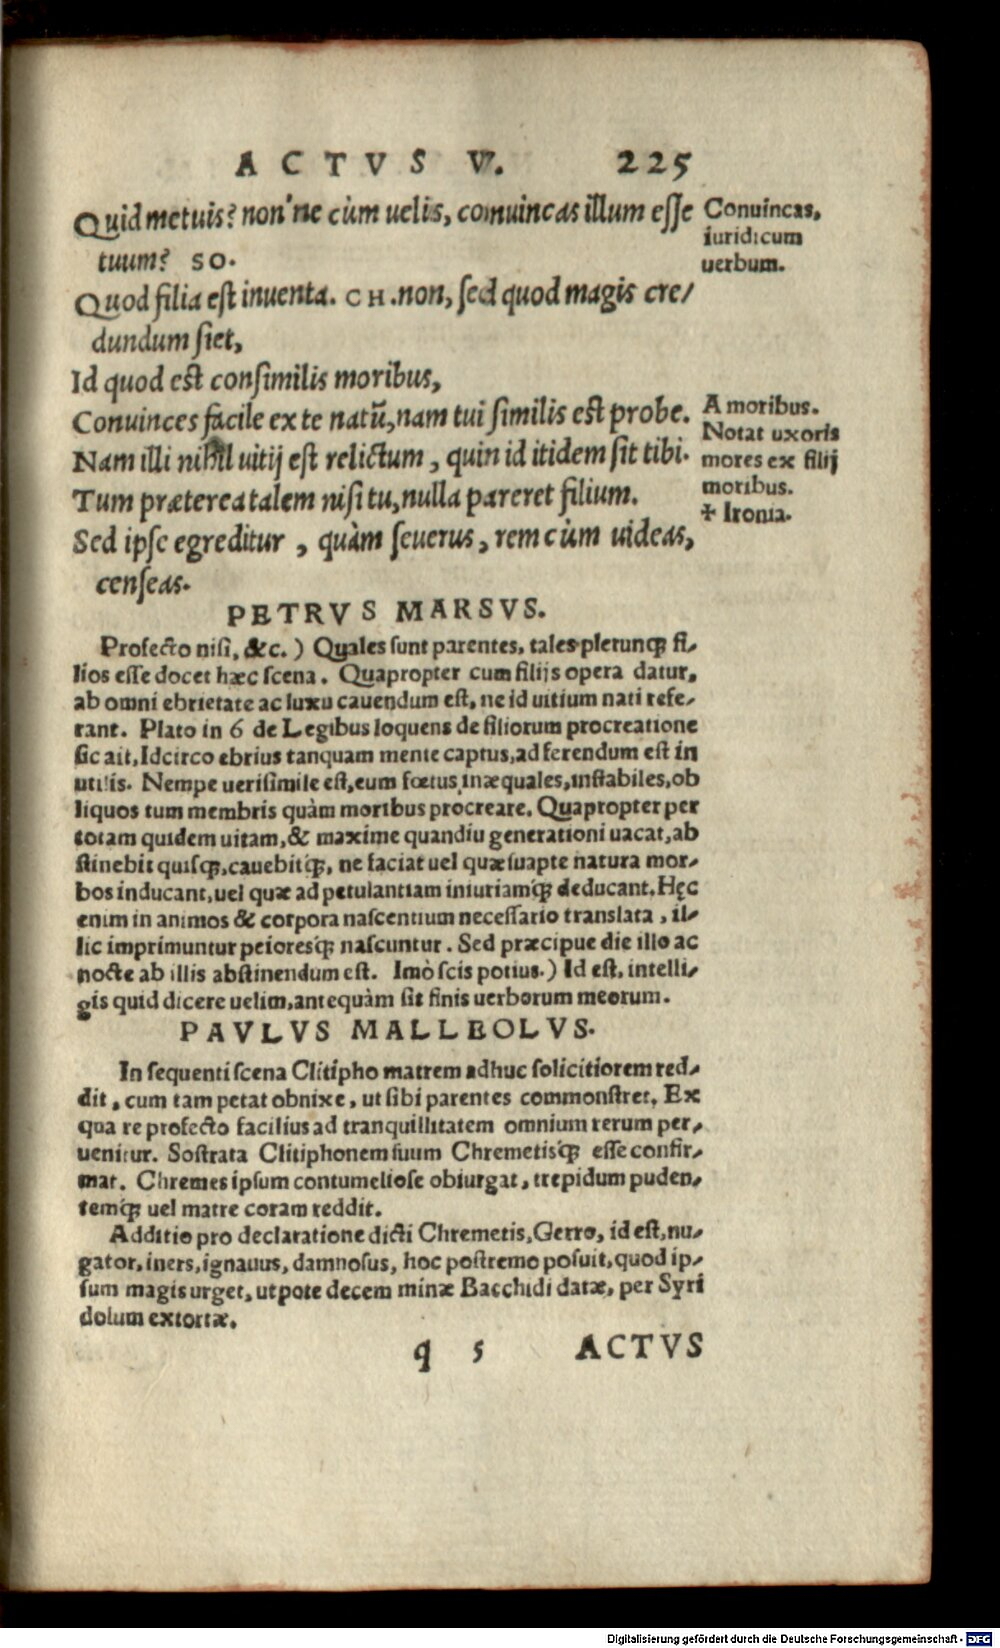 ACTVS V. 225
Quid metuis? non'ne cùm uelis, conuincas illum esse
tuum? SO.
Quod filia est inuenta. CH. non, sed quod magis cre/
dundum siet,
Id quod est consimilis moribus,
Conuinces facile ex te natū, nam tui similis est probe.
Nam illi nihil uitij est relictum, quin id itidem sit tibi.
Tum præterea talem nisi tu, nulla pareret filium.
Sed ipse egreditur, quàm seuerus, rem cùm uideas,
censeas.
Conuincas,
iuridicum
uerbum.
A moribus.
Notat uxoris
mores ex filij
moribus.
✠ Ironia.
PETRVS MARSVS.
Profecto nisi, &c.) Quales sunt parentes, tales plerunq; fi/
lios esse docet hæc scena. Quapropter cum filijs opera datur,
ab omni ebrietate ac luxu cauendum est, ne id uitium nati refe/
rant. Plato in 6 de Legibus loquens de filiorum procreatione
sic ait, Idcirco ebrius tanquam mente captus, ad ferendum est in
utilis. Nempe uerisimile est, eum fœtus inæquales, instabiles, ob
liquos tum membris quàm moribus procreare. Quapropter per
totam quidem uitam, & maxime quandiu generationi uacat, ab
stinebit quisq;, cauebitq́;, ne faciat uel quæ suapte natura mor/
bos inducant, uel quæ ad petulantiam iniuriamq́; deducant. Hęc
enim in animos & corpora nascentium necessario translata, il/
lic imprimuntur peioresq́; nascuntur. Sed præcipue die illo ac
nocte ab illis abstinendum est. Imò scis potius.) Id est, intelli/
gis quid dicere uelim, antequàm sit finis uerborum meorum.
PAVLVS MALLEOLVS.
In sequenti scena Clitipho matrem adhuc solicitiorem red/
dit, cum tam petat obnixe, ut sibi parentes commonstret. Ex
qua re profecto facilius ad tranquillitatem omnium rerum per/
uenitur. Sostrata Clitiphonem suum Chremetisq́; esse confir/
mat. Chremes ipsum contumeliose obiurgat, trepidum puden/
temq́; uel matre coram reddit.
Additio pro declaratione dicti Chremetis, Gerro, id est, nu/
gator, iners, ignauus, damnosus, hoc postremo posuit, quod ip/
sum magis urget, utpote decem minæ Bacchidi datæ, per Syri
dolum extortæ.
q 5 ACTVS
Digitalisierung gefördert durch die Deutsche Forschungsgemeinschaft - DFG